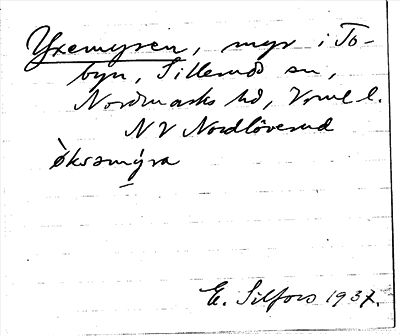 Yxemyren, myr i To-
byn, Sillerud sn,
Nordmarks hd, Vrml l.
NV Nordlöverud
òksəmýra
E. Silfors 1937.